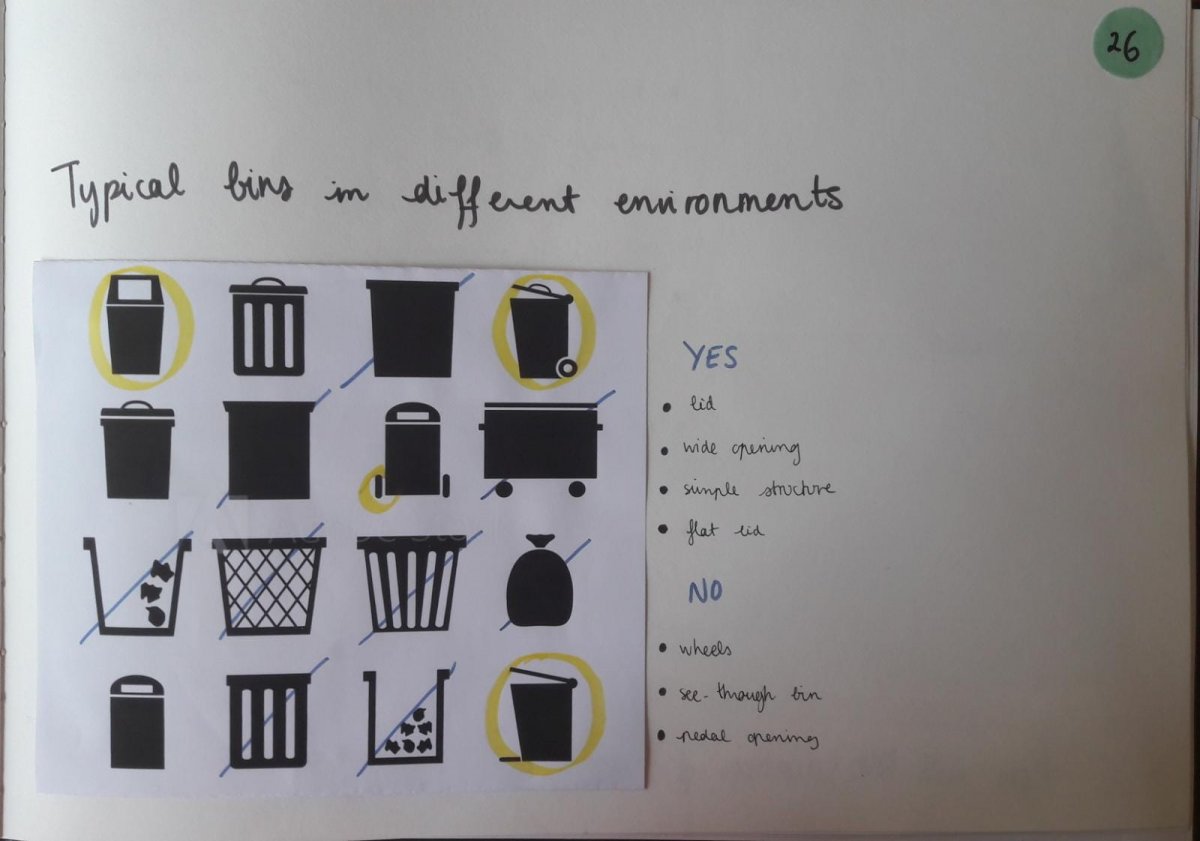 26
Typical bins in different environments
YES
• lid
• wide opening
• simple structure
• flat lid
NO
• wheels
• see-through bin
• pedal opening